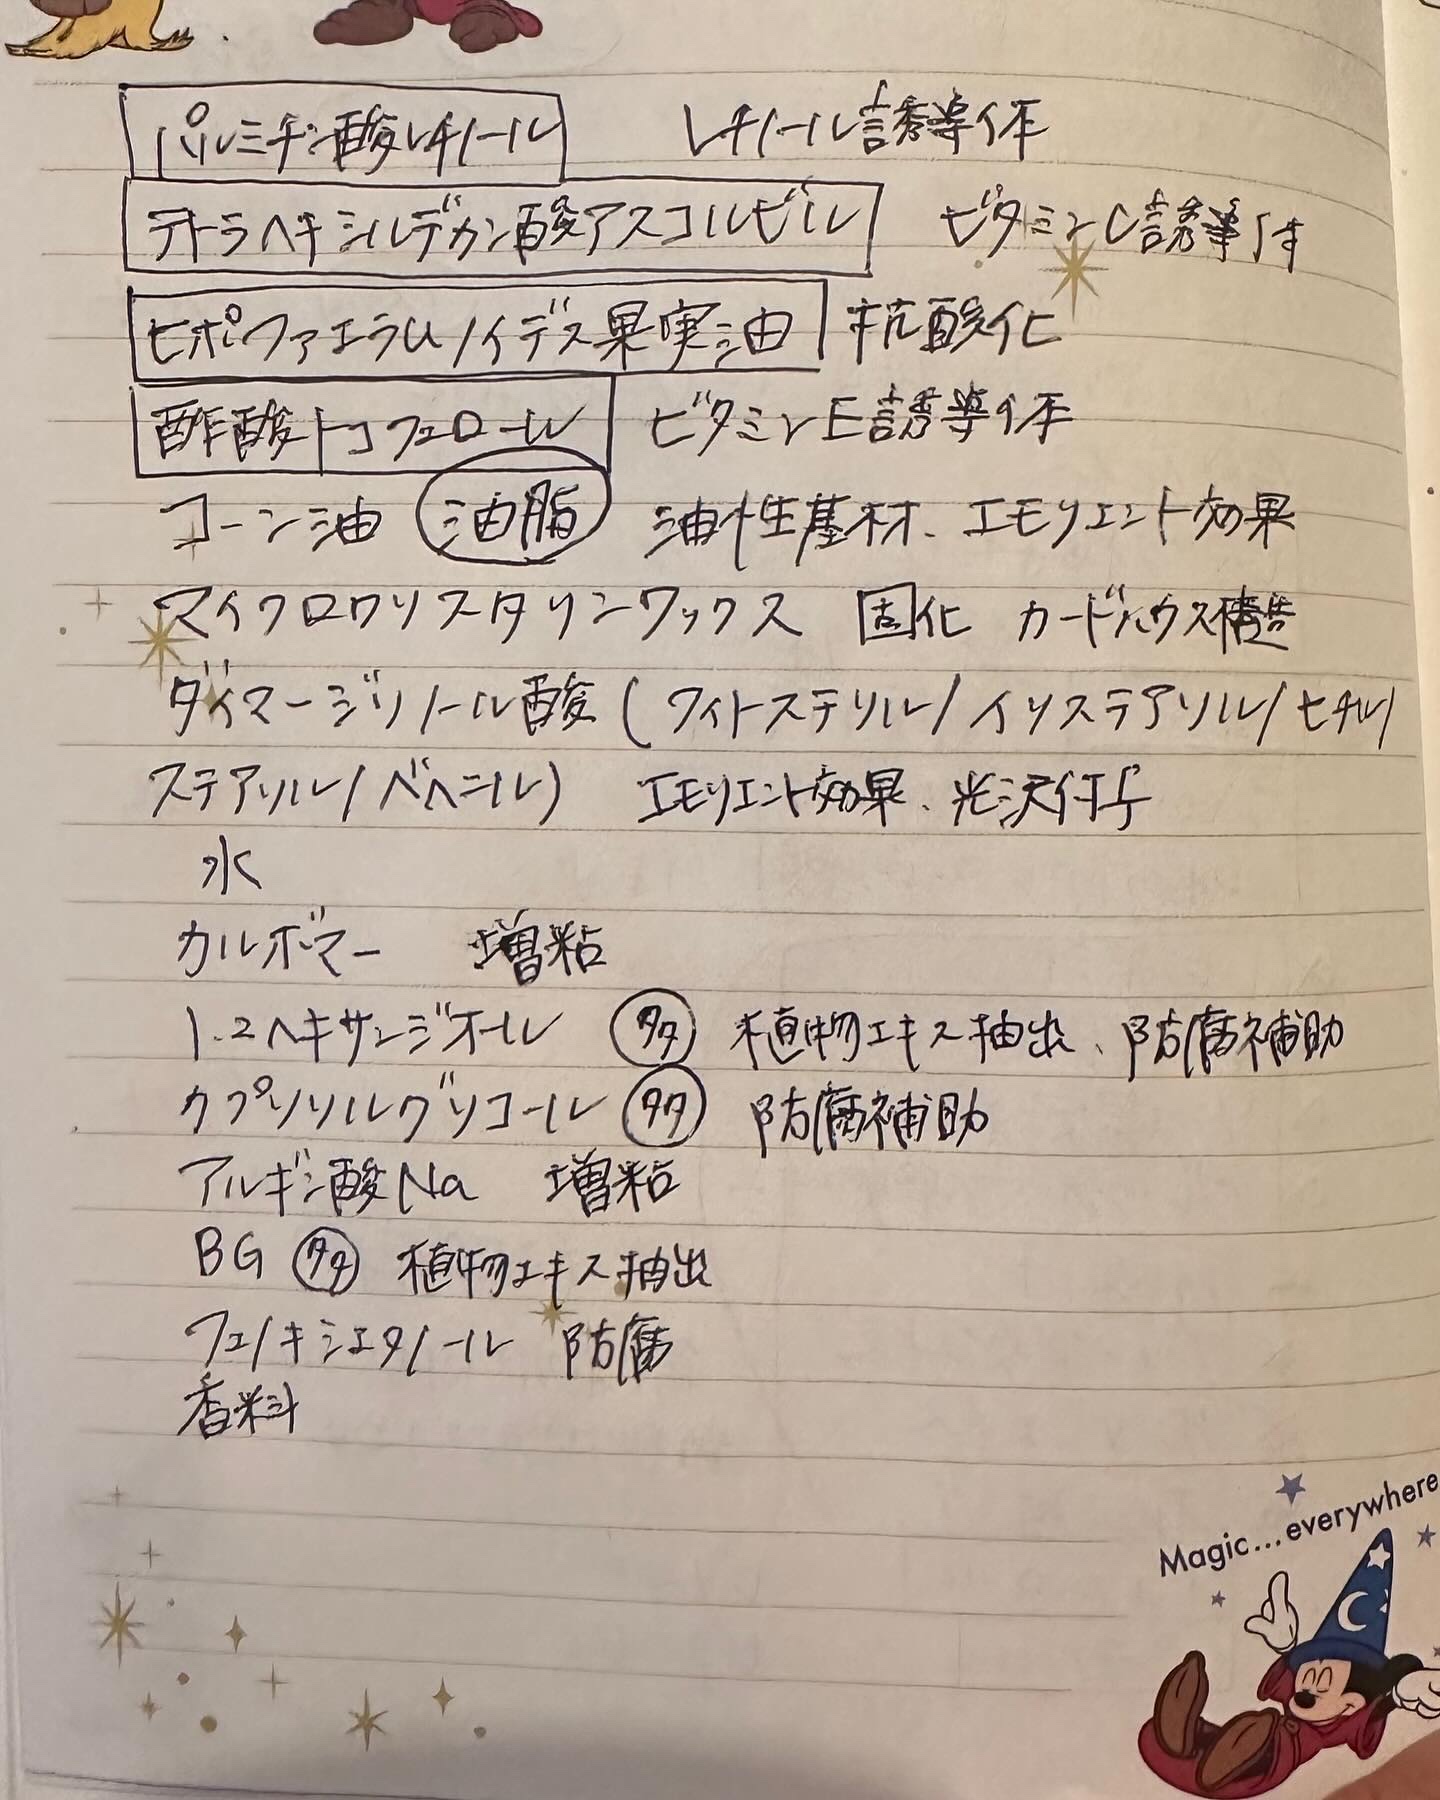 パルミチン酸レチノール レチノール誘導体
テトラヘキシルデカン酸アスコルビル ビタミンC誘導体
ヒポファエラムノイデス果実油 抗酸化
酢酸トコフェロール ビタミンE誘導体
コーン油 油脂 油性基材、エモリエント効果
マイクロクリスタリンワックス 固化 カードハウス構造
ダイマージリノール酸(フィトステリル/イソステアリル/セチル/
ステアリル/ベヘニル) エモリエント効果、光沢付与
水
カルボマー 増粘
1.2ヘキサンジオール 多 植物エキス抽出、防腐補助
カプリリルグリコール 多 防腐補助
アルギン酸Na 増粘
BG 多 植物エキス抽出
フェノキシエタノール 防腐
香料
Magic...everywhere